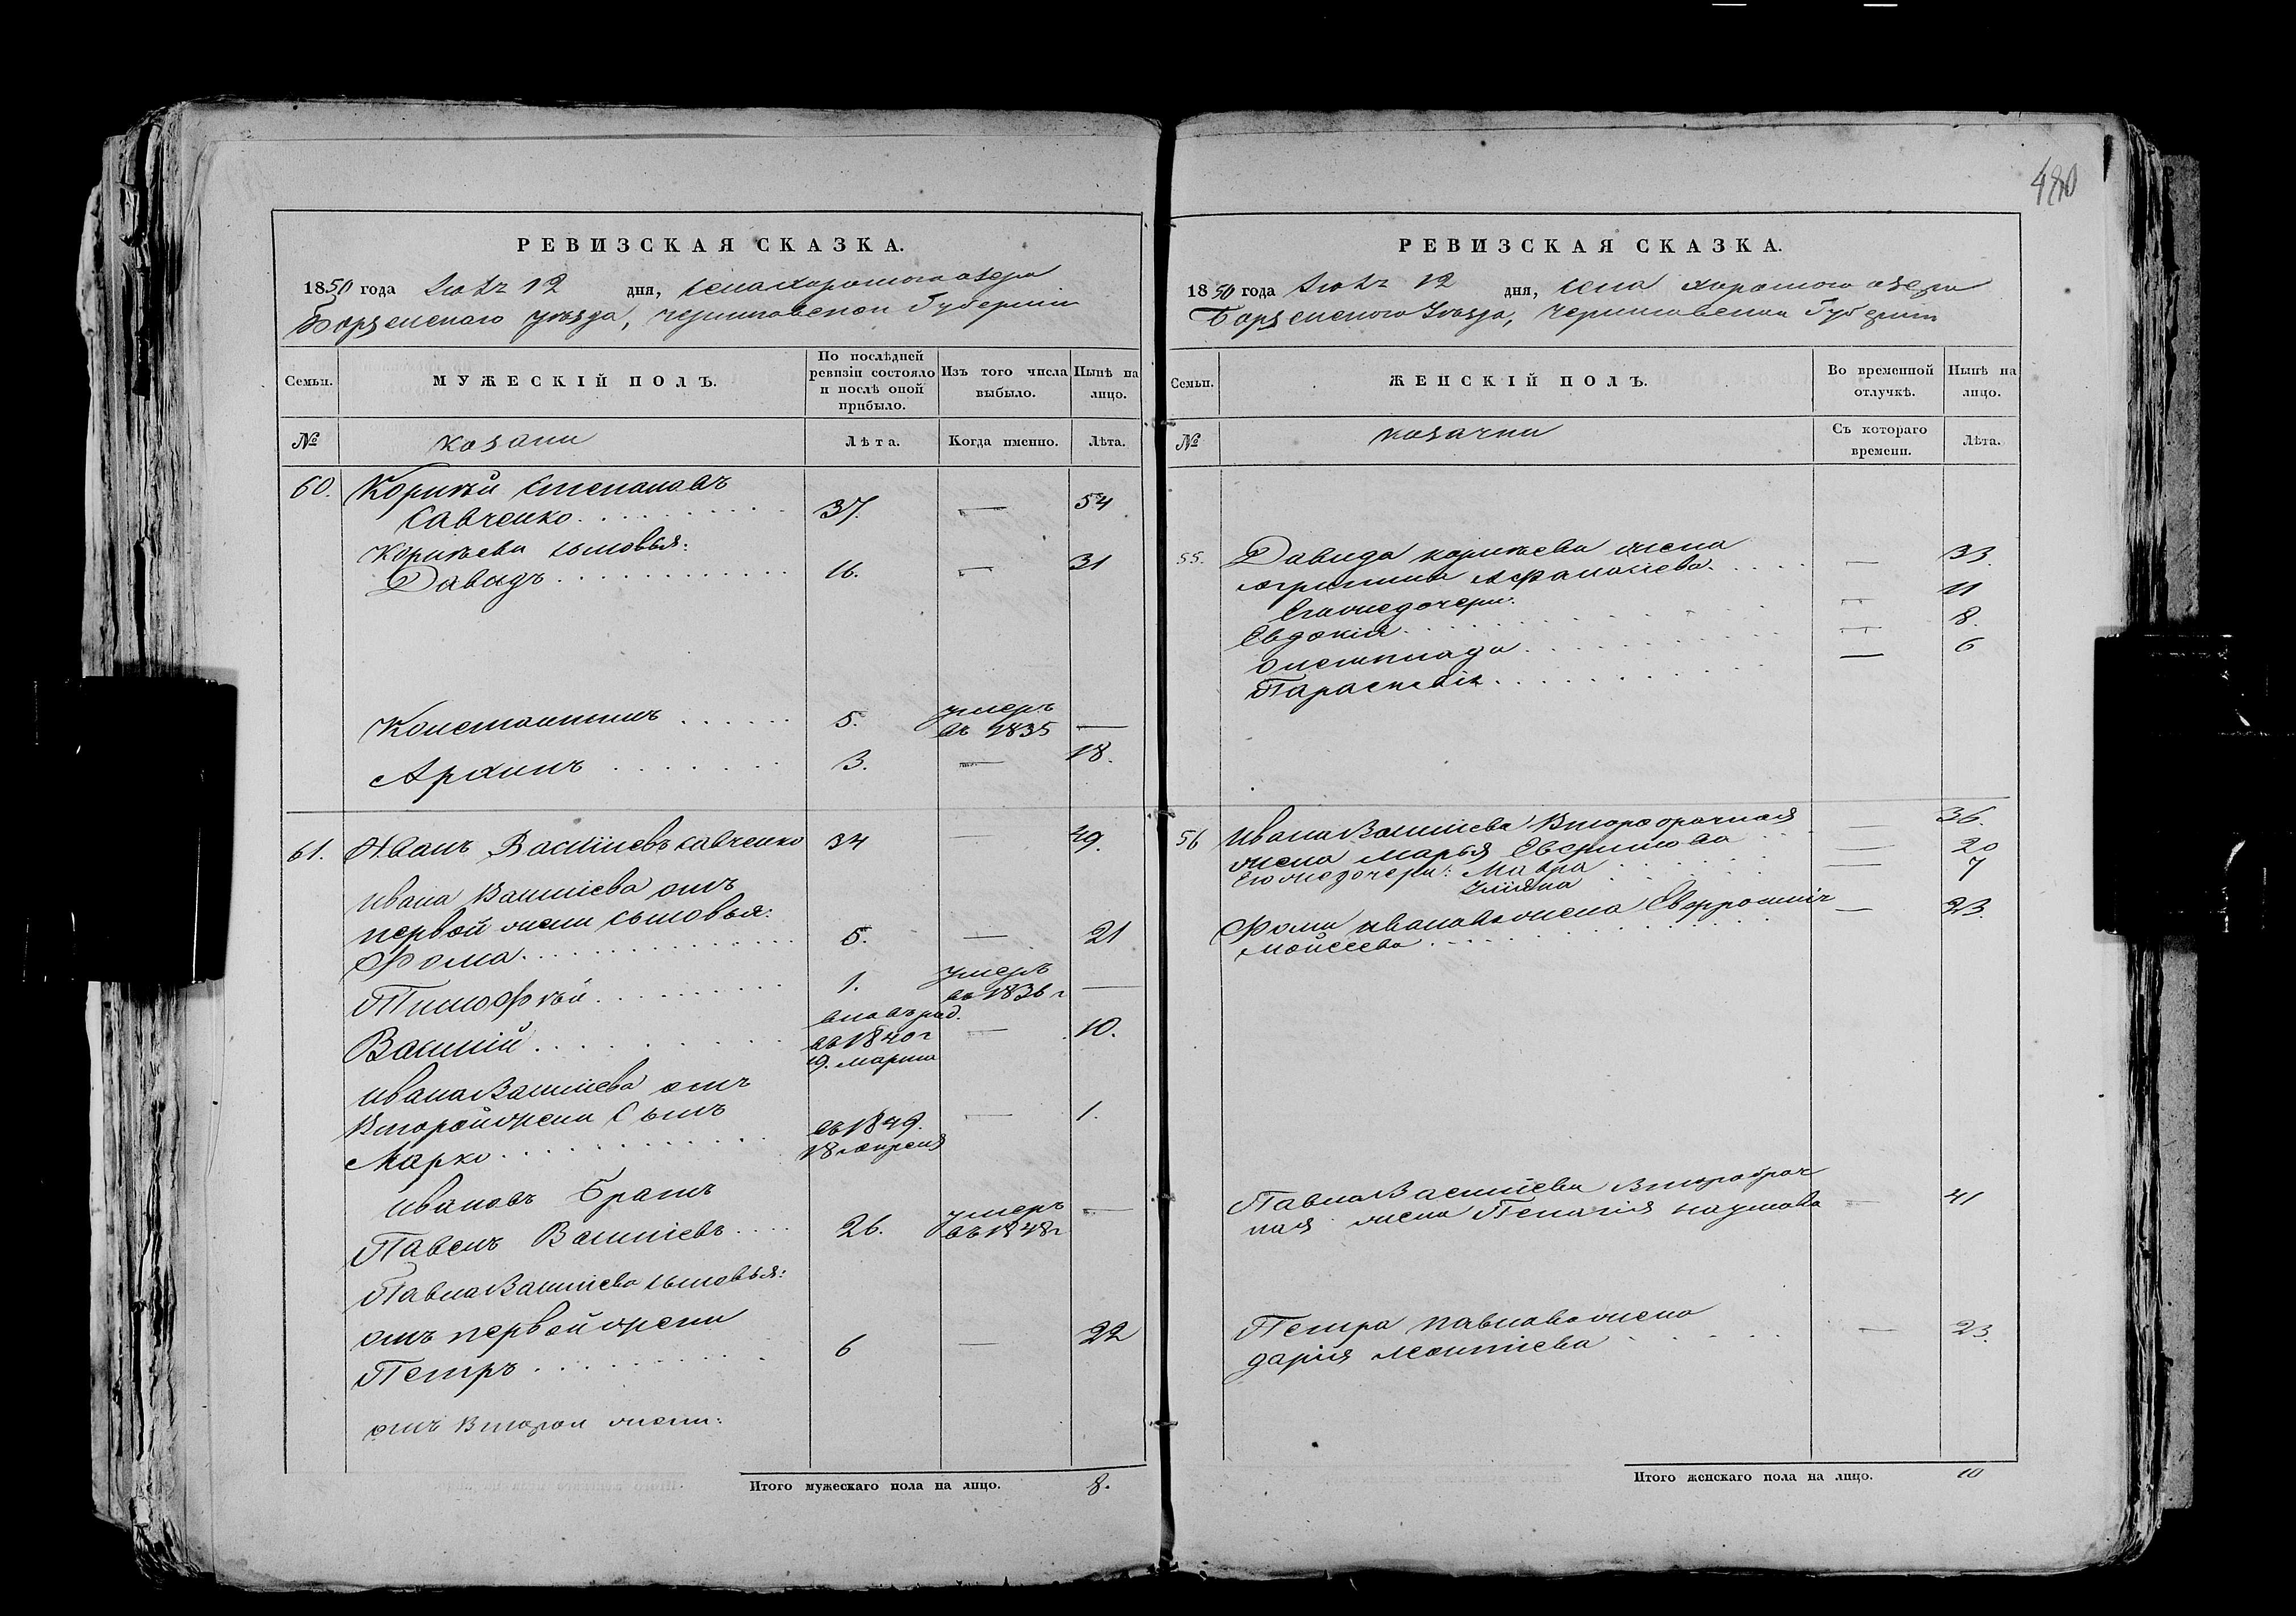 480
РЕВИЗСКАЯ СКАЗКА.
1850 года 12 дня, села хорошого озера
Борзенского уѣзда, черниговской Губерніи
Семьи.
МУЖЕСКІЙ ПОЛЪ.
По послѣдней ревизіи состояло и послѣ оной прибыло.
Изъ того числа выбыло.
Нынѣ на лицо.
№
козаки
Лѣта.
Когда именно.
Лѣта.
60. Корнѣй Степановъ
Савченко 37. — 54
Корнѣеви сыновья:
Давидъ 16. — 31
Константинъ 5. умеръ въ 1835 —
Архипъ 3. — 18.
61. Иванъ Василіевъ Савченко 34 — 49.
Ивана Василіева отъ
первой жени сыновья:
Фома 5. — 21
Тимофѣй 1. умеръ въ 1836 г —
Василій вновь рад. въ 1840 г 19. марта — 10.
Ивана Василіева отъ
второй жени сынъ
Марко въ 1849. 18 апреля — 1.
Ивановъ Братъ
Павелъ Василіевъ 26. умеръ въ 1848 г —
Павла Василіева сыновья:
отъ первой жени
Петръ 6 — 22
отъ второй жени:
Итого мужескаго пола на лицо. 8.
РЕВИЗСКАЯ СКАЗКА.
1850 года 12 дня, села хорошого озера
Борзенского уѣзда, Черниговской Губерніи
Семьи.
ЖЕНСКІЙ ПОЛЪ.
Во временной отлучкѣ.
Нынѣ на лицо.
№
козачки
Съ котораго времени.
Лѣта.
55. Давида корнѣева жена
агрипина Афанасіева — 33.
Егоже дочери:
Евдокія — 11
Олимпіада — 8.
Параскевія — 6
56 Ивана Василіева второбрачная
жена Марья — 36.
Егоже дочери: Мавра — 20
Уліяна — 7
Фоми Иванова жена Евфросинія
Мойсеева — 23.
Павла Василіева второбрач
ная жена Пелагія наумова — 41
Петра павлова жена
дарія Леонтіева — 23.
Итого женскаго пола на лицо. 10